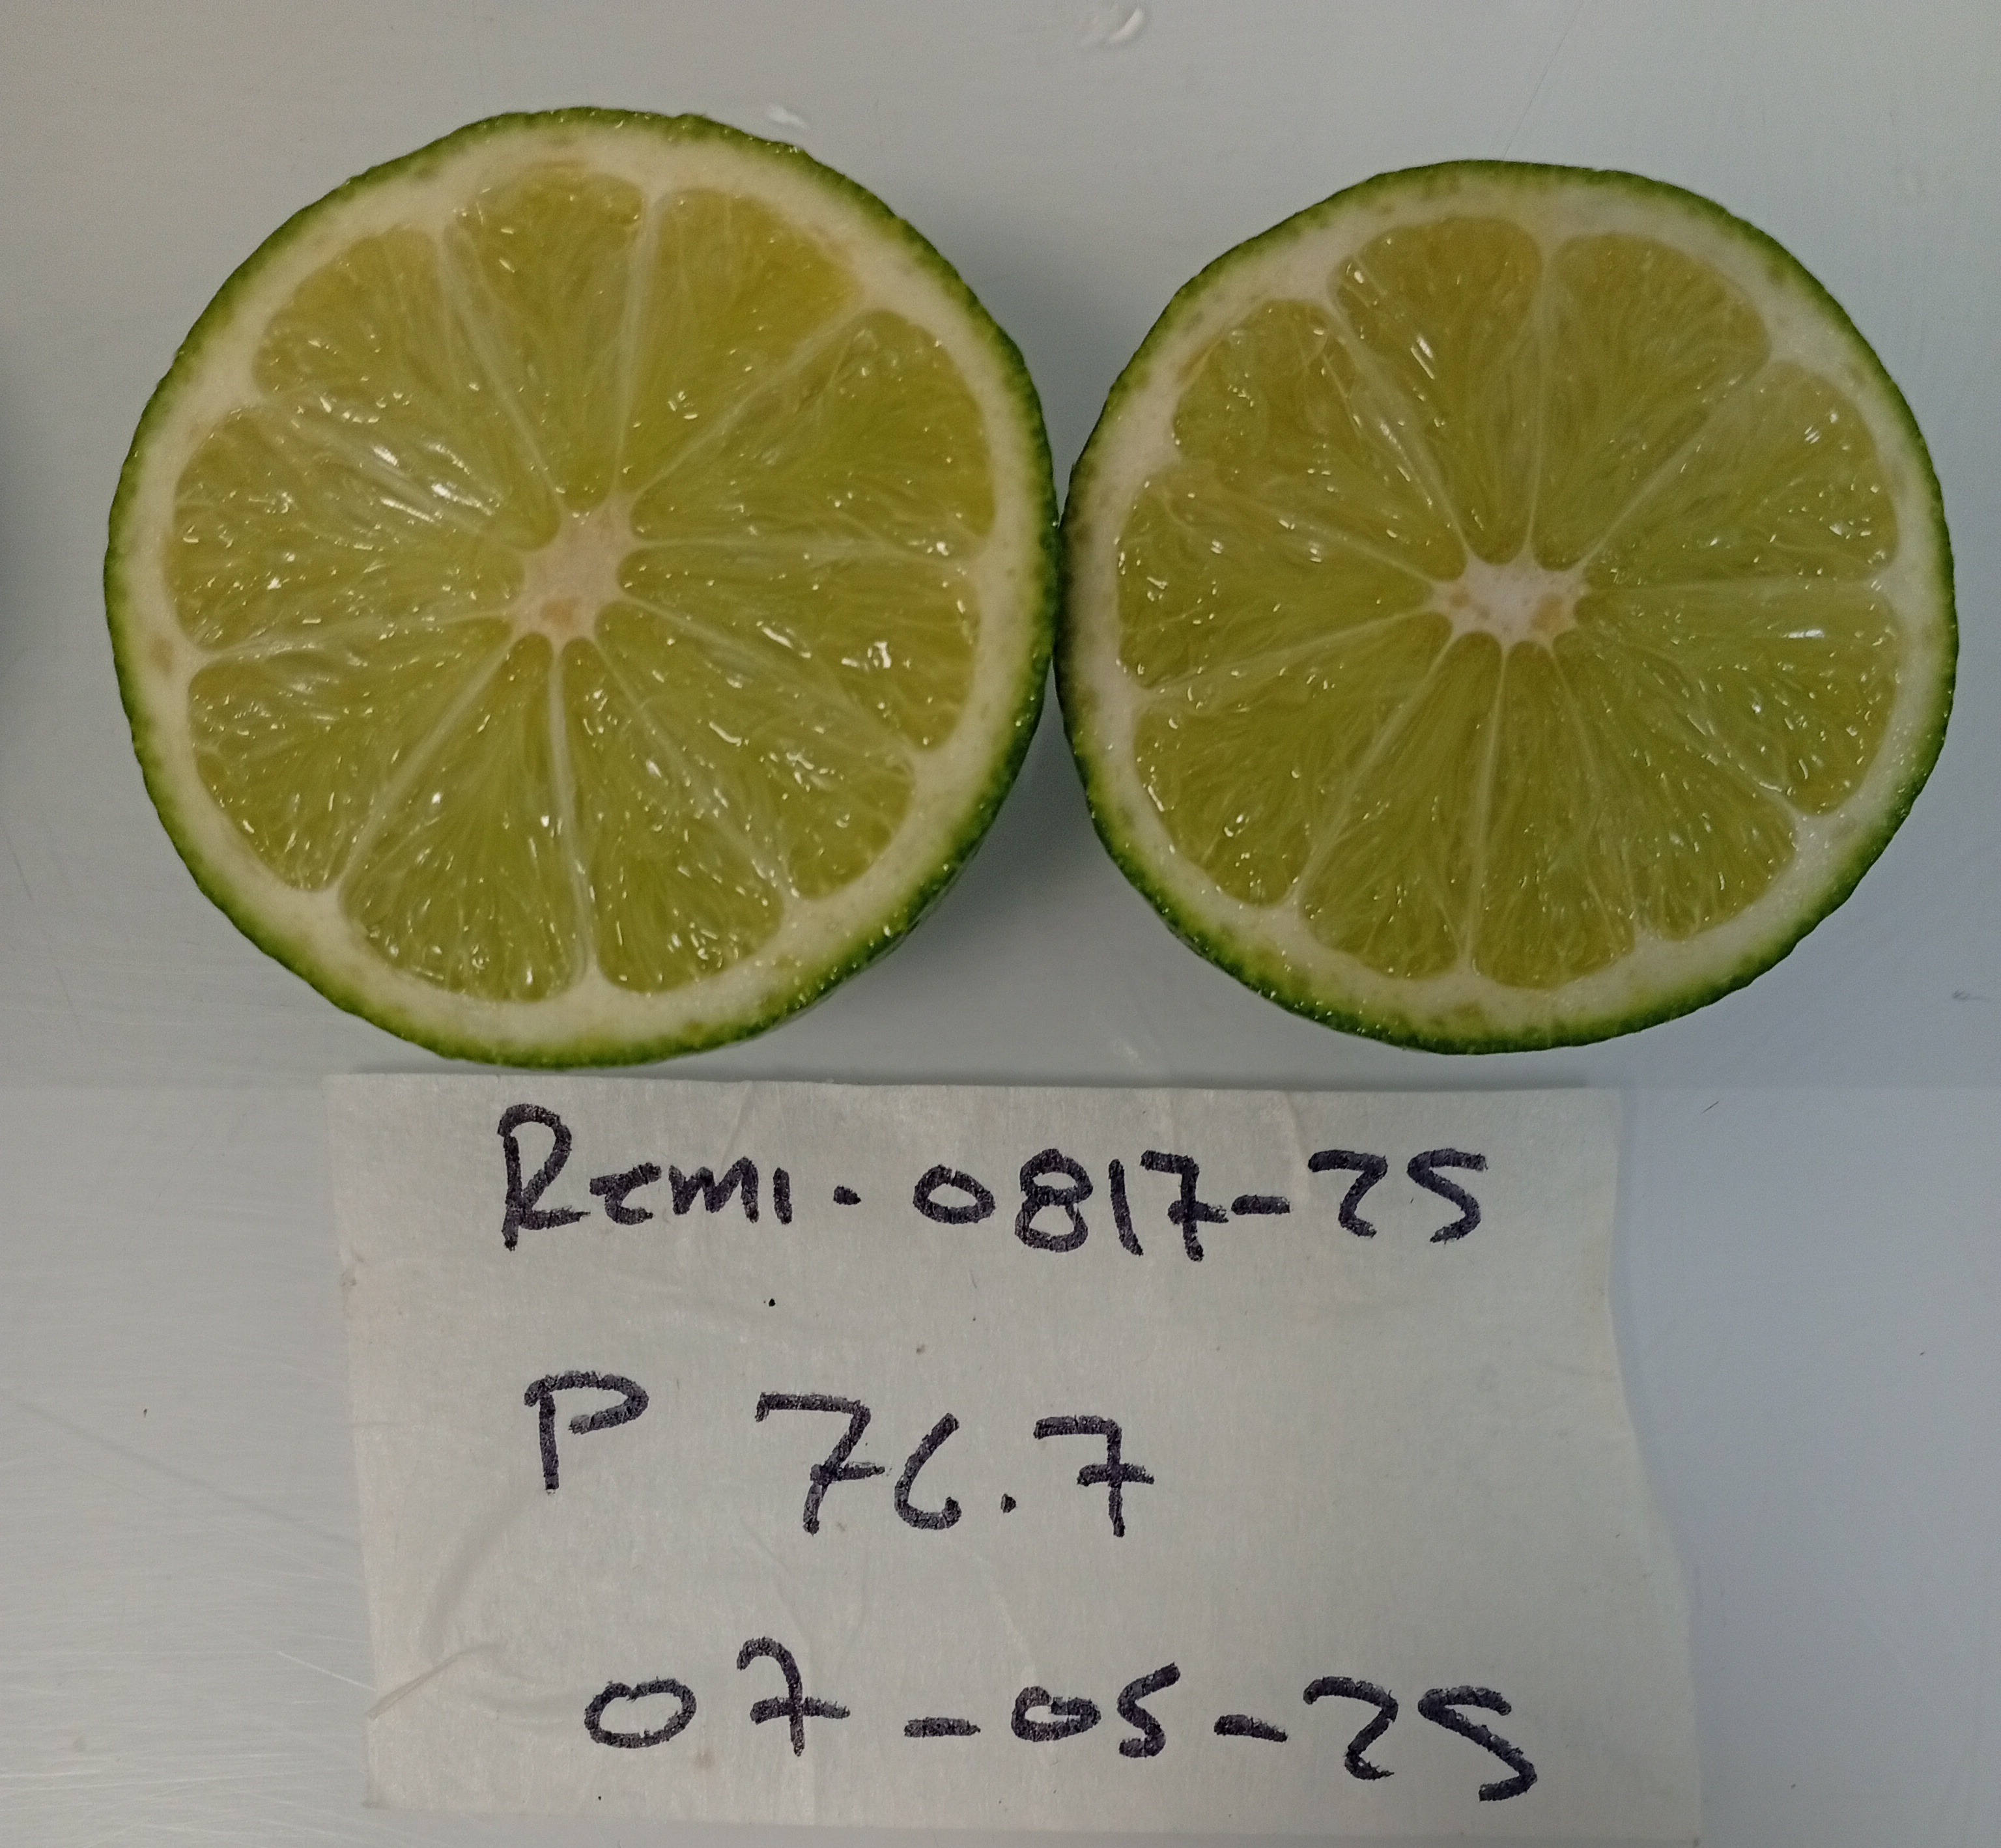 Remi. 0817-25
P 76.7
07-05-25